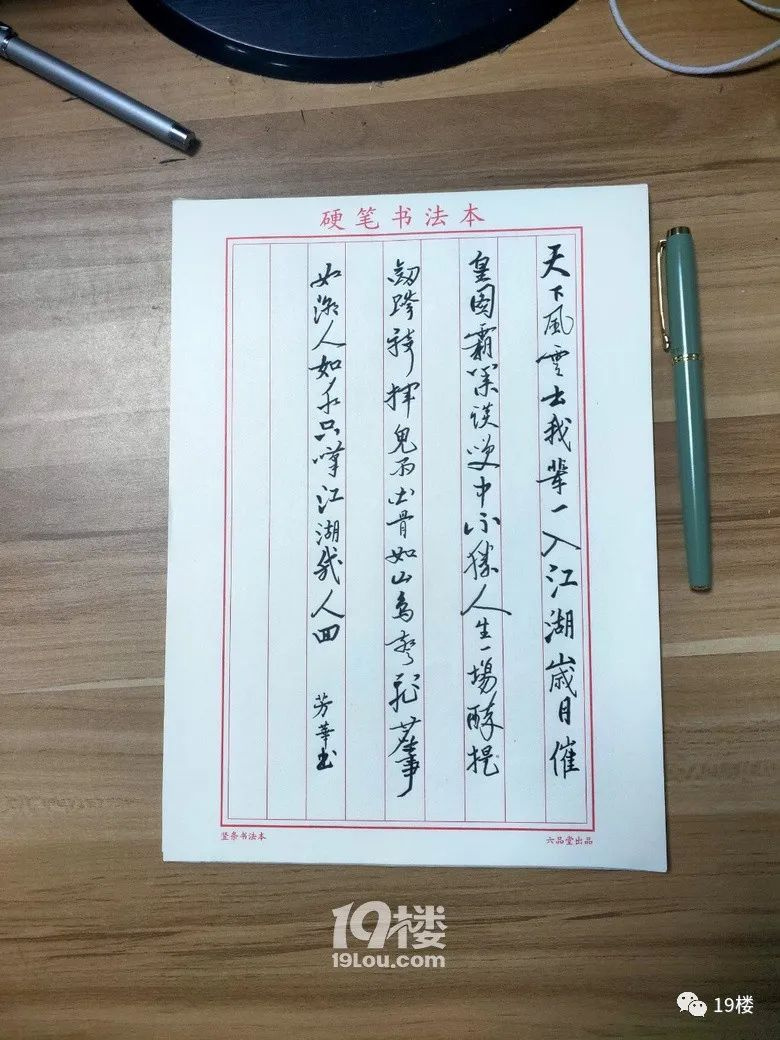 硬笔书法本
天下風雲出我輩一入江湖歲月催
皇图霸業谈笑中不勝人生一場醉提
劍跨骑揮鬼雨白骨如山鳥驚飛塵事
如潮人如水只嘆江湖幾人回
芳華书
竖条书法本
六品堂出品
19楼
19Lou.com
19楼